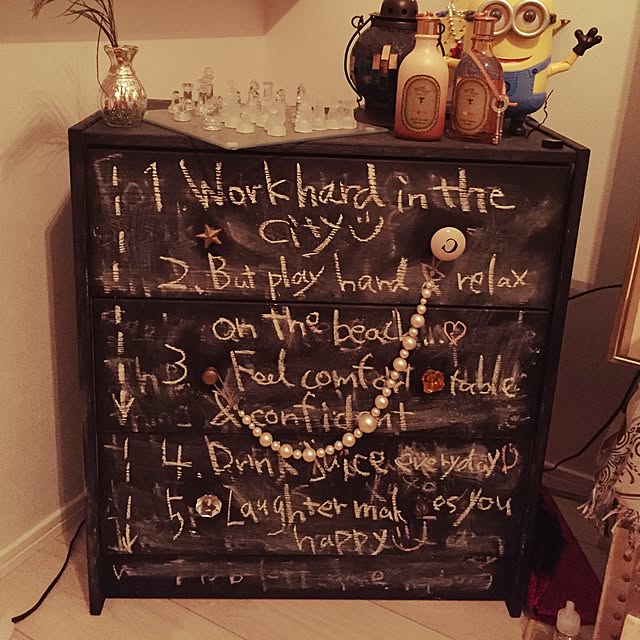 1. Work hard in the
city
2. But play hard & relax
on the beach...
3. Feel comfortable
& confident
4. Drink juice everyday
5. Laughter makes you
happy